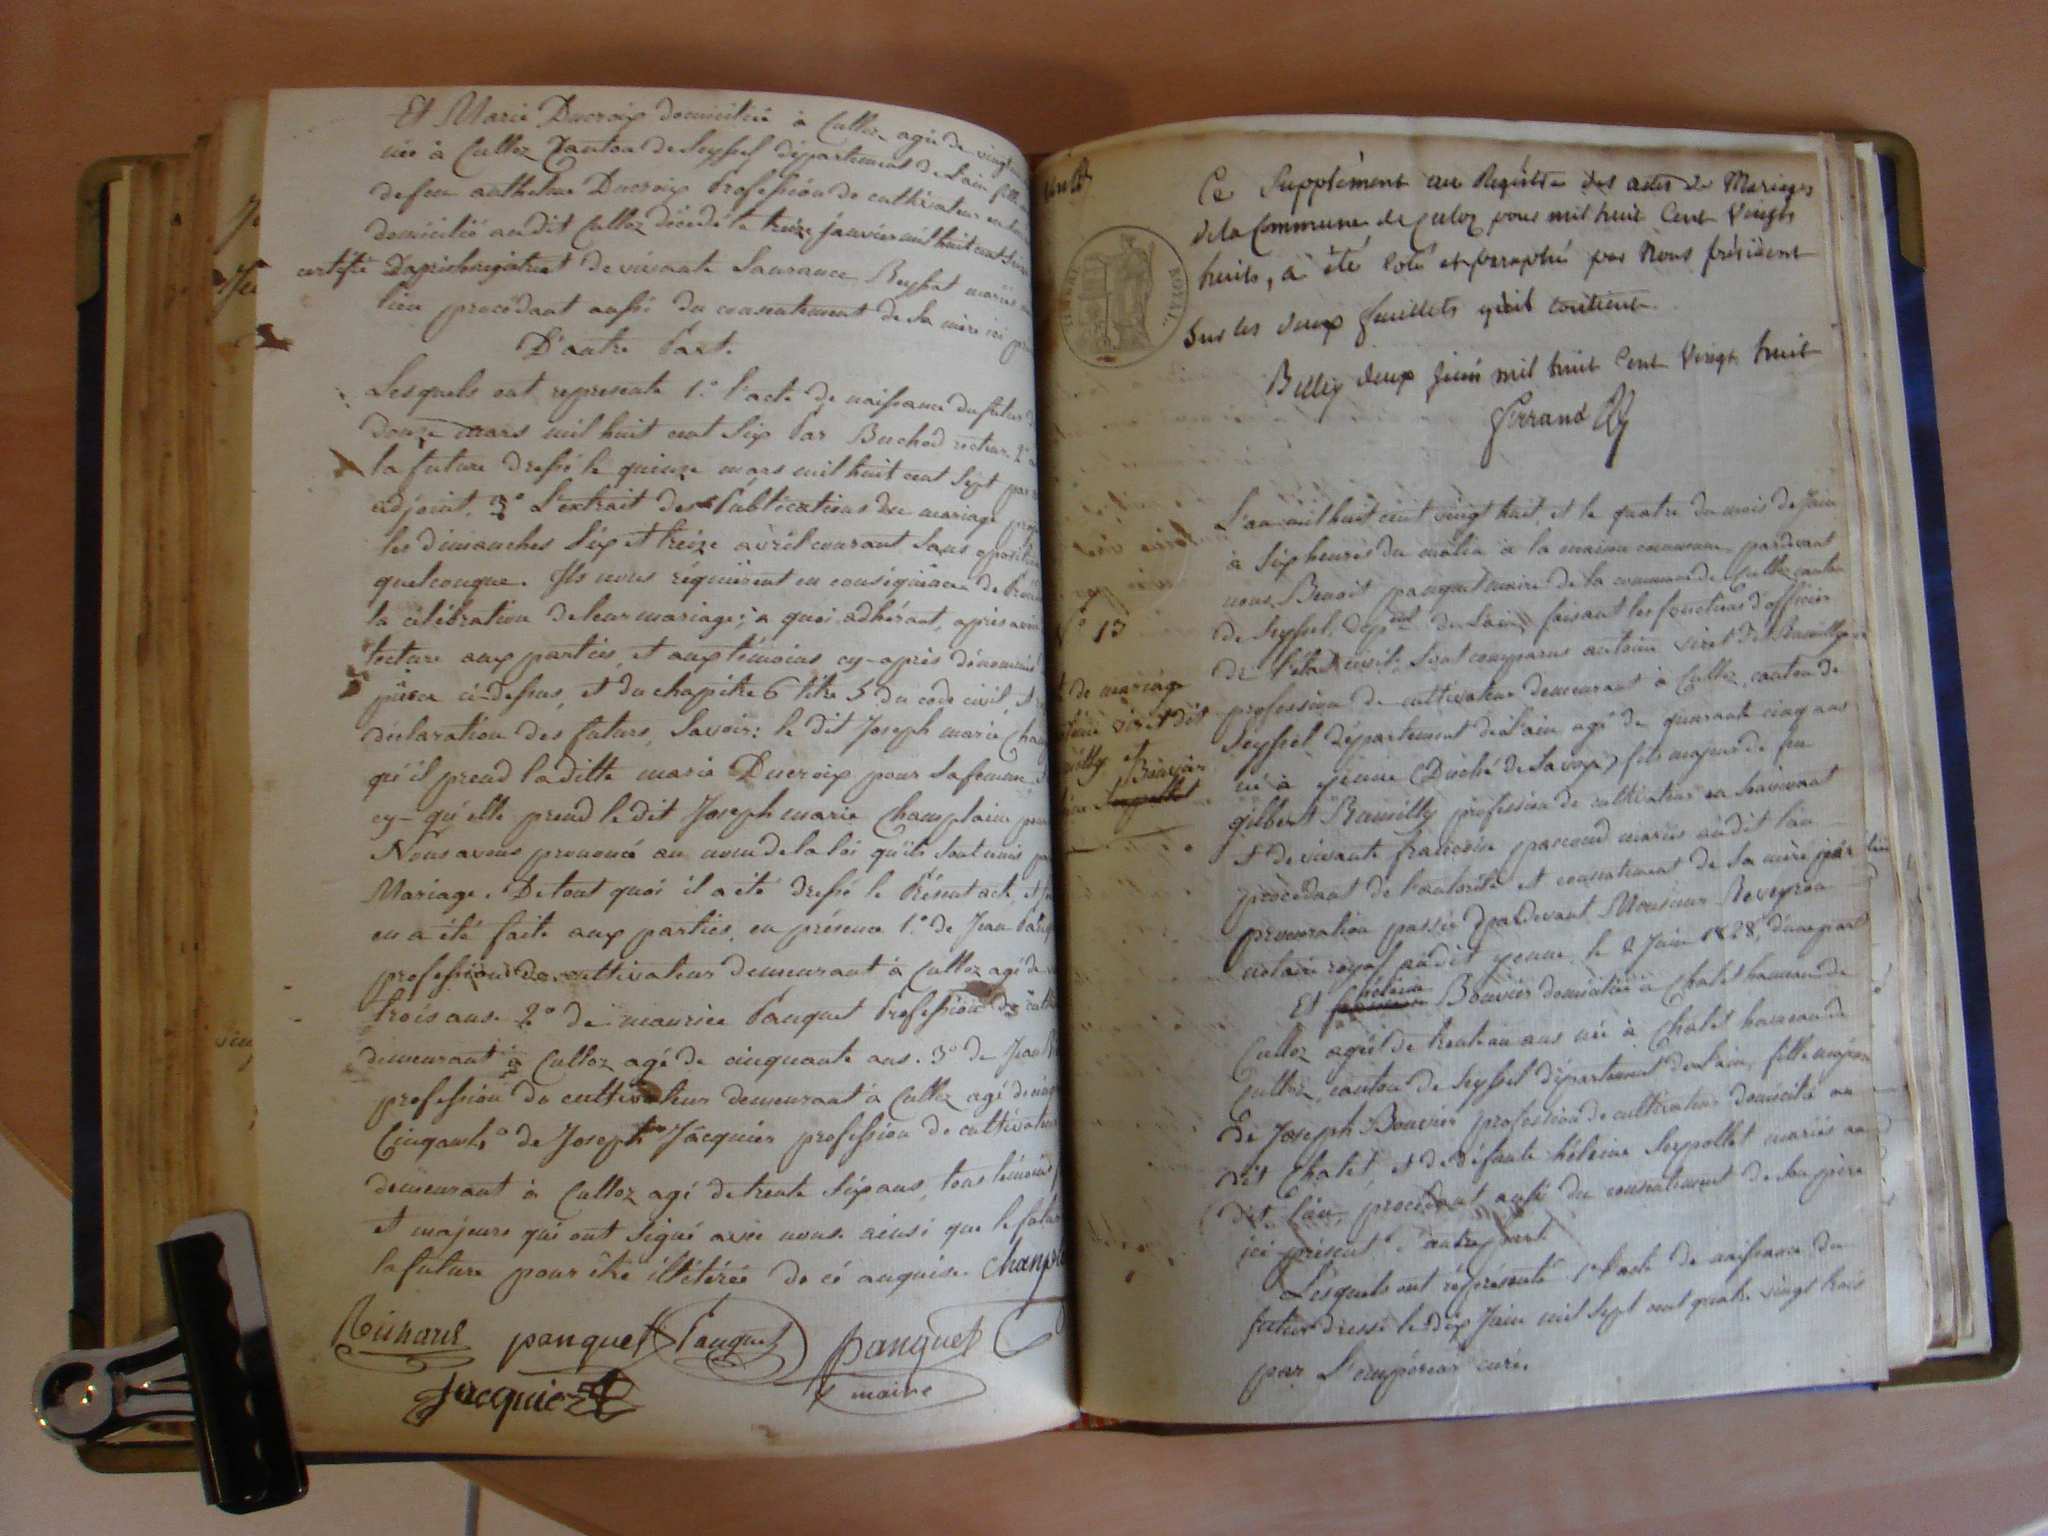 Et Marie Ducroix domiciliée à Culloz agée de vingt
née à Culloz Canton de Seyssel département de Lain fille
de feu anthelme Ducroix Profession de cultivateur en son
domicilié au dit Culloz décédé le treize janvier mil huit cent
certifié de vivante Laurance Beyssat mariés
lieu procédant aussi du consentement de sa mère ici
D'autre Part.
Lesquels ont représenté 1.º l'acte de naissance du futur
Douze mars mil huit cent six Par Buchod recteur 2º
la future dressé le quinze mars mil huit cent sept par
adjoint. 3º L'extrait des Publications du mariage
les dimanches Six et treize avril courant sans oposition
quelconque. Ils nous réquièrent en conséquence de
la célébration de leur mariage; a quoi adhérant, après avoir
lecture aux parties, et aux témoins cy-après dénommés
pièces ci-dessus, et du chapitre 6 titre 5 du code civil, et
déclaration des futurs, Savoir: le dit Joseph marie
qu'il prend la ditte marie Ducroix pour sa femme
cy- qu'elle prend le dit Joseph marie Champlain
Nous avons prononcé au nom de la loi qu'ils sont unis
Mariage. De tout quoi il a été dressé le Présent acte, et
en a été faite aux parties, en présence 1.º de Jean
profession de cultivateur demeurant à Culloz agé de
trois ans. 2º de maurice Panquet Profession de
demeurant à Culloz agé de cinquante ans. 3º de Jean
profession de cultivateur demeurant à Culloz agé de
de Joseph Jacquier profession de cultivateur
demeurant à Culloz agé de trente Six ans, tous témoins
et majeurs qui ont signé avec nous ainsi que le futur
la future pour être illétérée de ce anquise.
Richard panquet Panquet panquet
Jacquier maire
Ce Supplément au Registre des actes de Mariages
de la Commune de Culoz pour mil huit Cent Vingt
huit, a été coté et paraphé par Nous président
Sur les deux feuillets qu'il contient
Belley deux juin mil huit Cent Vingt huit
Ferrand
ROYAL.
L'an mil huit cent vingt huit, et le quatre du mois de Juin
à Six heures du matin à la maison commune, pardevant
nous Benoit panquet maire de la commune de Culloz canton
de Seyssel, dépᵐᵗ de Lain, faisant les fonctions d'officier
de l'état civil; Sont comparus antoine viret dit Rumilly
profession de cultivateur demeurant à Culloz, canton de
Seyssel département de Lain agé de quarante cinq ans
né à yenne (Duché de Savoye) fils majeur de feu
gilbert Rumilly profession de cultivateur en Son vivant
et de vivante francoise pascoud mariés au dit lieu
procédant de l'autorité et consentement de sa mère par
procuration passée pardevant Monsieur Reveyron
notaire royal au dit yenne, le 2 Juin 1828, d'une part
Et hélène Bouvier domiciliée à Chatel hameau de
Culloz agée de trente un ans née à Chatel hameau de
Culloz, canton de Seyssel département de Lain, fille majeure
de Joseph Bouvier profession de cultivateur domicilié au
dit Chatel, et de défunte hélène Serpollet mariés au
dit lieu, procédant aussi du consentement de Son père
ici présent d'autre part.
Lesquels ont représenté 1º l'acte de naissance du
futur dressé le dix Juin mil Sept cent quatre vingt trois
par L'empéreur curé.
13
de mariage
viret dit
et
Bouvier
Serpollet